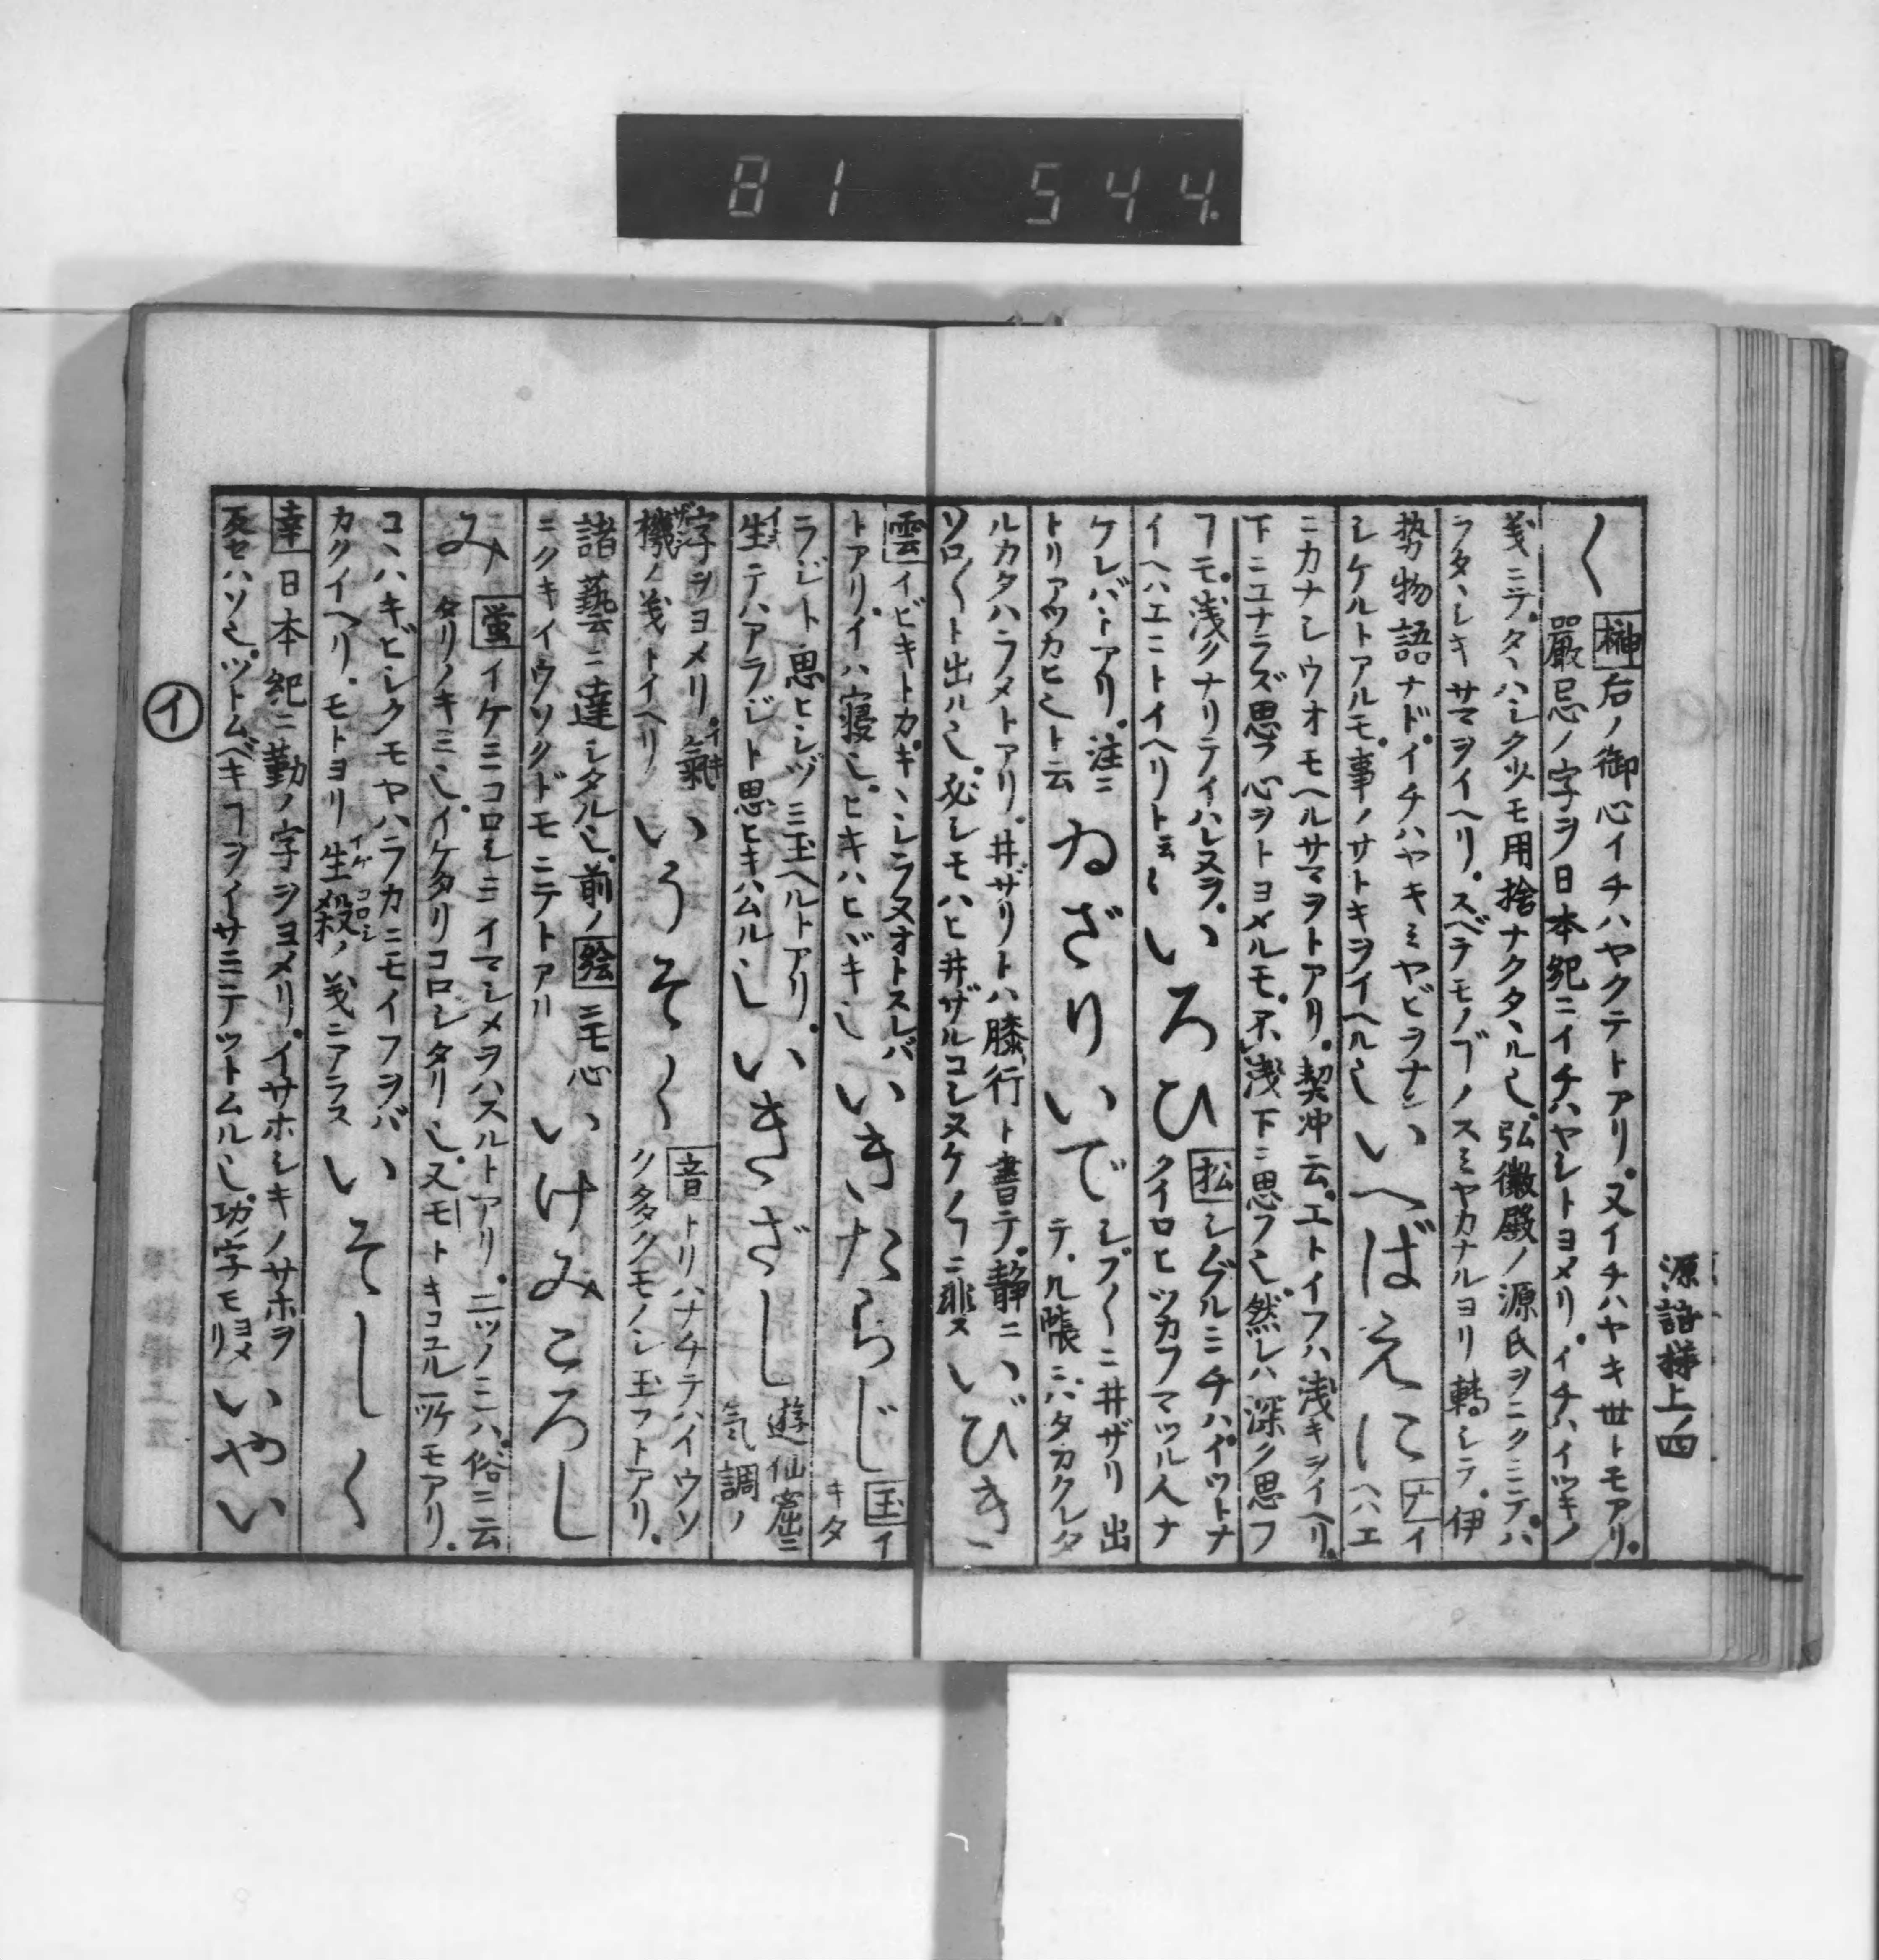 81 544
源語梯上ノ四
く
榊 后ノ御心イチハヤクテトアリ。又イチハヤキ世トモアリ。
嚴忌ノ字ヲ日本紀ニイチハヤシトヨメリ。イチハイツキノ
義ニテ。タヽハシク少モ用捨ナクタヽル也。弘徽殿ノ源氏ヲニクミテ。ハ
ラタヽシキサマヲイヘリ。スベテモノゴトノスミヤカナルヨリ轉シテ。伊
勢物語ナド。イチハヤキミヤビヲナン
シケルトアルモ。事ノサトキヲイヘル也
いへばえに
ナ イ
ヘハエ
ニカナシウオモヘルサマヲトアリ。契沖云。エトイフハ浅キヲイヘリ。
下ニエナラズ思フ心ヲトヨメルモ。不浅下ニ思フ也。然レハ深ク思フ
フモ。浅クナリテイハレヌヲ。
イヘハエニトイヘリト云々
いろひ
松 シグルニチハイツトナ
クイロヒツカフマツル人ナ
ケレバトアリ。注ニ
トリアツカヒ也ト云
ゐざりいで
シブ〱ニ井ザリ出
テ。几帳ニハタカクレタ
ルカタハラメトアリ。井ザリトハ膝行ト書テ。静ニ
ソロ〱ト出ル也。必シモハヒ井ザルコシヌケノ㕝ニ非ス
いびき
雲 イビキトカキヽシラヌオトスレバ
トアリ。イハ寝也。ヒキハヒヾキ也
いきたらじ
玉 イ
キタ
ラジト思ヒシヅミ玉ヘルトアリ。
生テハアラジト思ヒキハムル也
いきざし
遊仙窟ニ
氣調ノ
字ヲヨメリ。氣
機ノ義トイヘリ
いうそく
音 トリハナチテハイウソ
ク多クモノシ玉フトアリ。
諸藝ニ達シタル也。前ノ絵ニモ心
ニクキイウソクドモニテトアリ
いけみころし
み
蛍 イケミコロシミイマシメヲハスルトアリ。二ツノミハ。俗ニ云
タリノキミ也。イケタリコロシタリ也。又モトキコユル一ツケモアリ。
コヽハキビシクモヤハラカニモイフヲバ
カクイヘリ。モトヨリ生殺ノ義ニアラス
いそしく
幸 日本紀ニ勤ノ字ヲヨメリ。イサホシキノサホヲ
反セハソ也。ツトムベキ㕝ヲイサミテツトムル也。功ノ字モヨメリ
いやい
イ